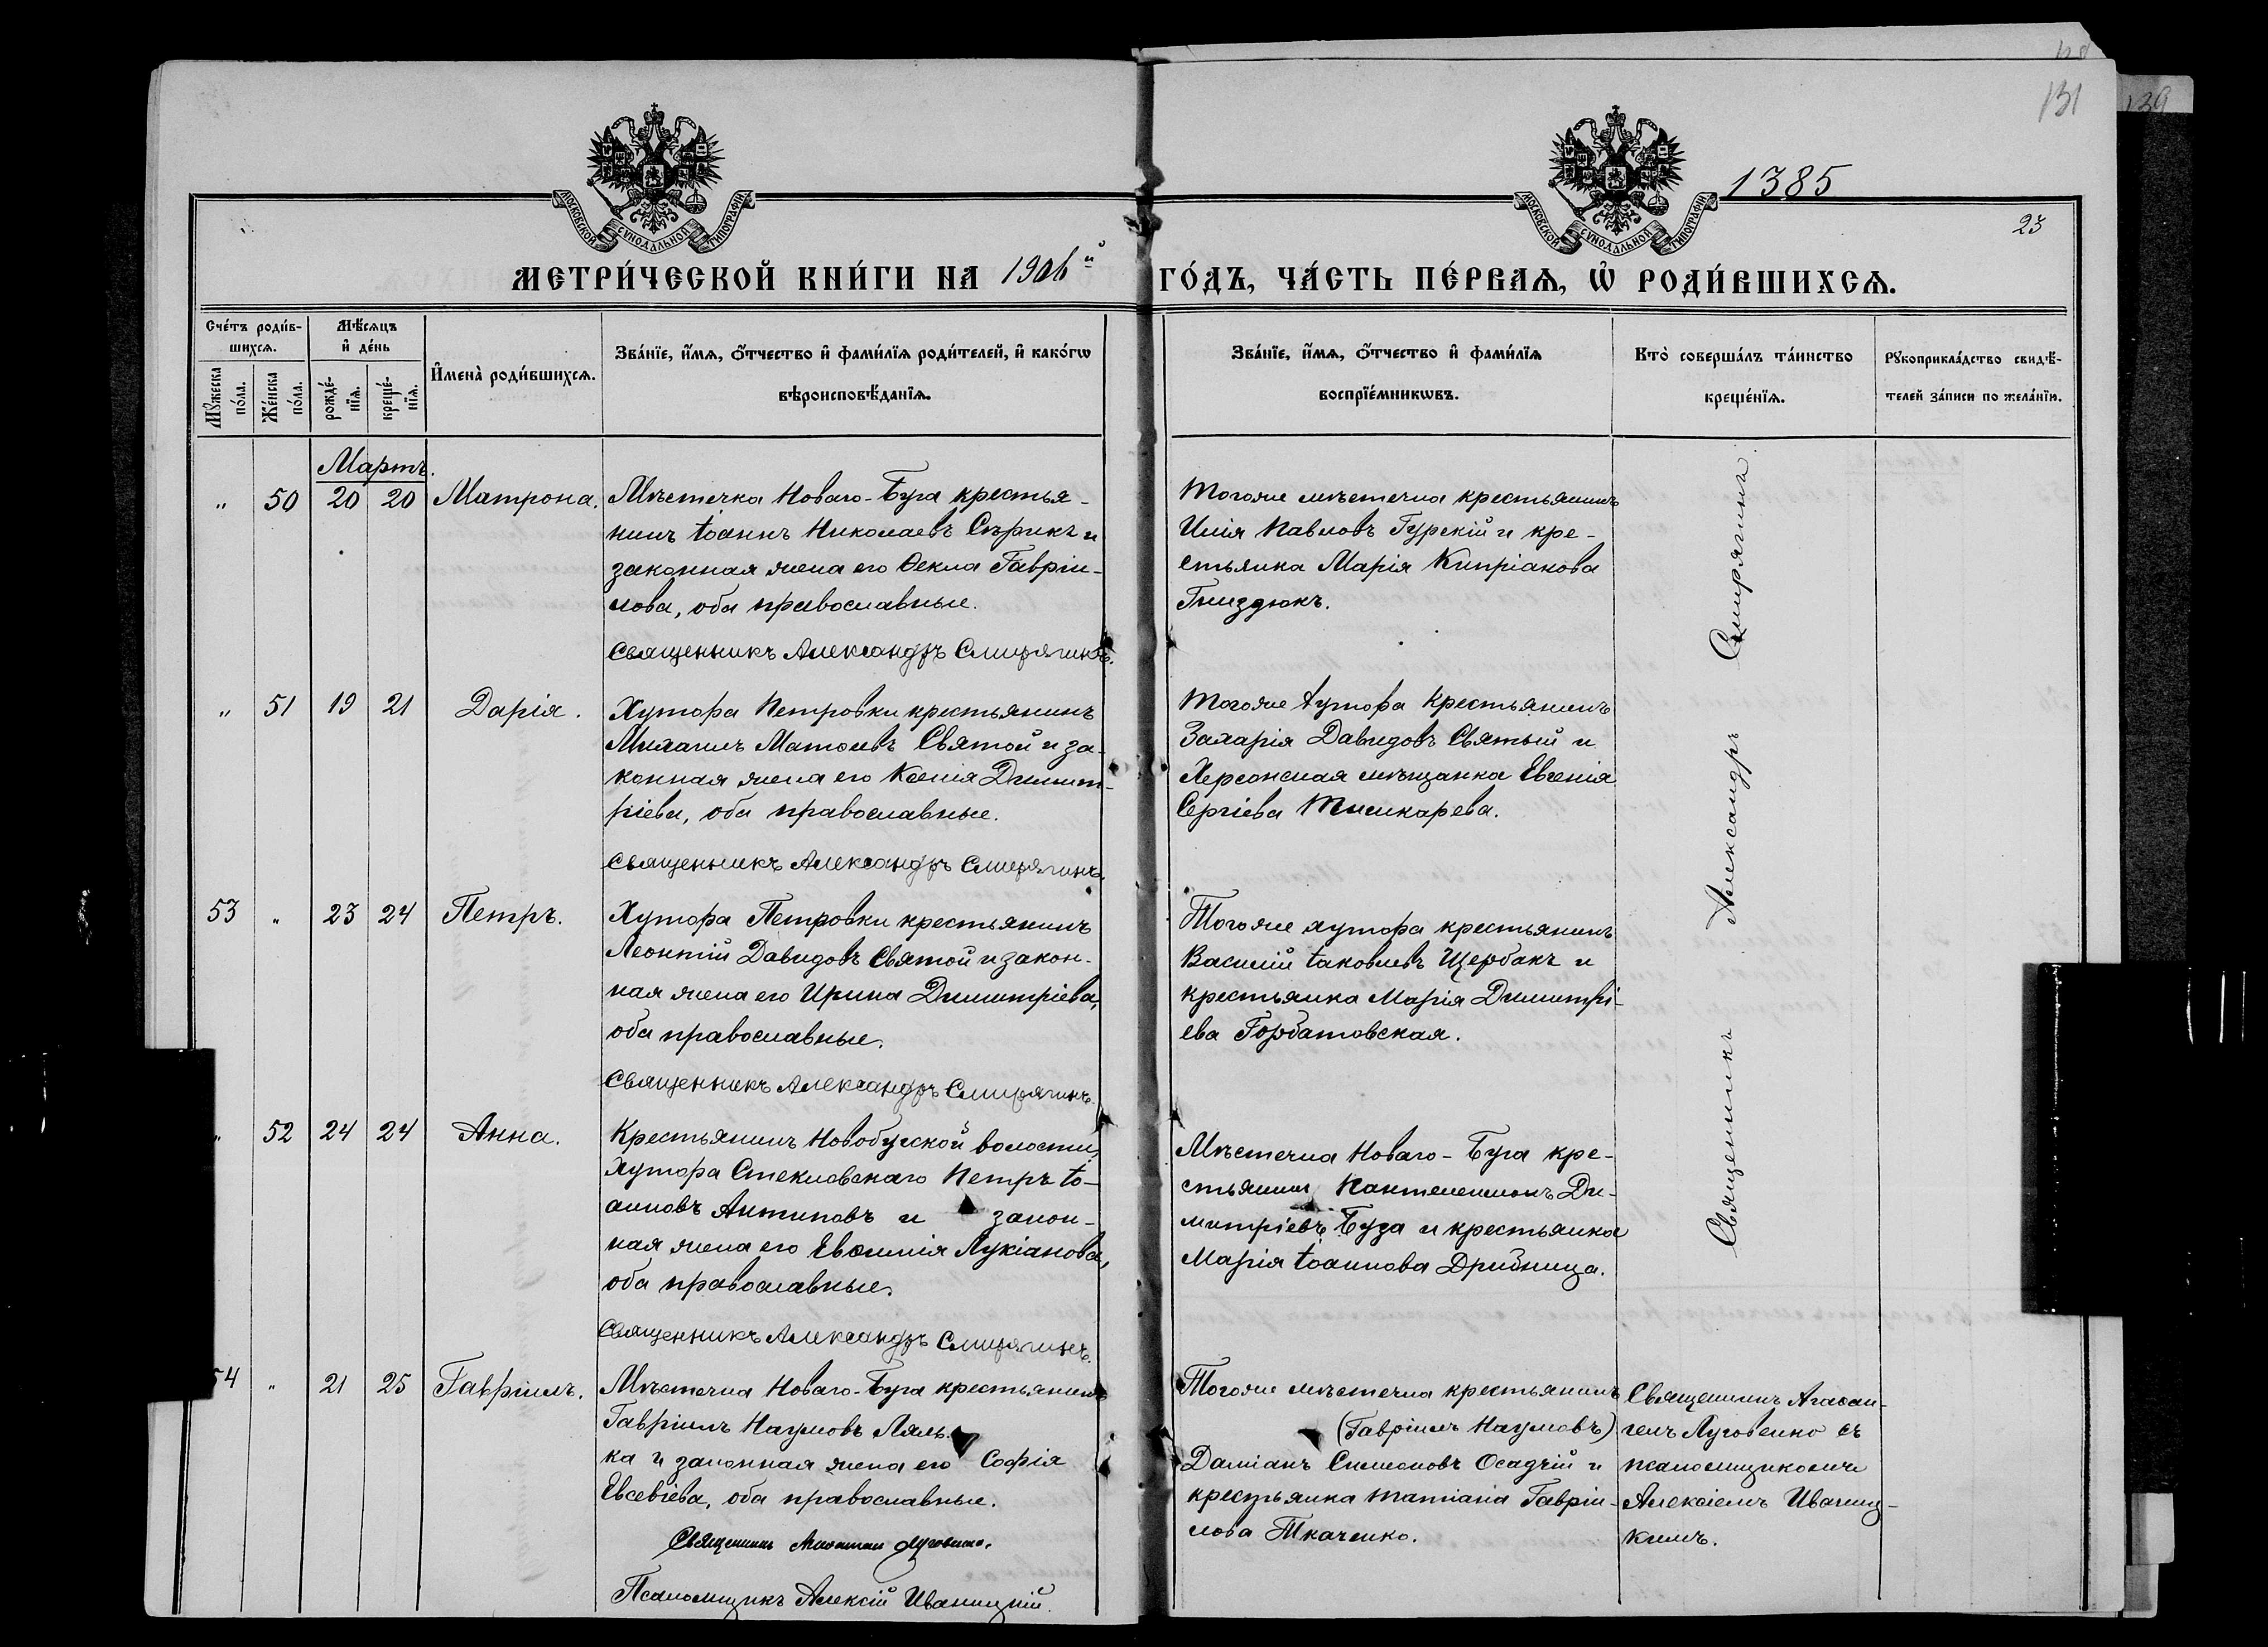 131
139
1385
23
МОСКОВСКОЙ СУНОДАЛЬНОЙ ТИПОГРАФІИ
МОСКОВСКОЙ СУНОДАЛЬНОЙ ТИПОГРАФІИ
МЕТРИ́ЧЕСКОЙ КНИ́ГИ НА 1906й ГО́ДЪ, ЧА́СТЬ ПЕ́РВАѦ, Ѡ҆ РОДИ́ВШИХСѦ.
Сче́тъ роди́в-
шихсѧ.
Мѣ́сѧцъ
и҆ де́нь
Мꙋ́жеска
по́ла.
Же́нска
по́ла.
рожде́-
нїѧ.
креще́-
нїѧ.
И҆мена̀ роди́вшихсѧ.
Зва́нїе, и҆́мѧ, ѻ҆́тчество и҆ фами́лїѧ роди́телей, и҆ како́гѡ
вѣроисповѣ́данїѧ.
Зва́нїе, и҆́мѧ, ѻ҆́тчество и҆ фами́лїѧ
воспрїе́мникѡвъ.
Кто̀ соверша́лъ та́инство
креще́нїѧ.
Рꙋкоприкла́дство свидѣ́-
телей за́писи по жела́нїю.
Мартъ.
" 50 20 20 Матрона.
Мѣстечка Новаго-Буга крестья-
нинъ Іоаннъ Николаевъ Сѣрикъ и
законная жена его Ѳекла Гавріи-
лова, оба православные.
Священникъ Александръ Смирягинъ.
Тогоже мѣстечка крестьянинъ
Илія Павловъ Гурскій и кре-
стьянка Марія Кипріанова
Гниздюкъ.
Священникъ Александръ Смирягинъ
" 51 19 21 Дарія.
Хутора Петровки крестьянинъ
Михаилъ Матѳеевъ Святой и за-
конная жена его Ксенія Димит-
ріева, оба православные.
Священникъ Александръ Смирягинъ.
Тогоже хутора крестьянинъ
Захарія Давидовъ Святый и
Херсонская мѣщанка Евгенія
Сергіева
53 " 23 24 Петръ.
Хутора Петровки крестьянинъ
Леонтій Давидовъ Святой и закон-
ная жена его Ирина Димитріева,
оба православные.
Священникъ Александръ Смирягинъ.
Тогоже хутора крестьянинъ
Василій Іаковлевъ Щербакъ и
крестьянка Марія Димитрі-
ева Горбатовская.
" 52 24 24 Анна.
Крестьянинъ Новобугской волости,
Хутора Стекловскаго Петръ Іо-
анновъ Антиповъ и закон-
ная жена его Евѳимія Лукіанова,
оба православные.
Священникъ Александръ Смирягинъ.
Мѣстечка Новаго-Буга кре-
стьянинъ Пантелеимонъ Ди-
митріевъ Буза и крестьянка
Марія Іоаннова Дрибница.
54 " 21 25 Гавріилъ.
Мѣстечка Новаго-Буга крестьянинъ
Гавріилъ Наумовъ Ляль-
ка и законная жена его Софія
Евсевіева, оба православные.
Священникъ Агаѳангелъ Луговенко.
Псаломщикъ Алексій Иваницкій.
Тогоже мѣстечка крестьянинъ
(Гавріилъ Наумовъ)
Даміанъ Симеоновъ Осадчій и
крестьянка Татіана Гавріи-
лова Ткаченко.
Священникъ Агаѳан-
гелъ Луговенко съ
псаломщикомъ
Алексіемъ Иваниц-
кимъ.